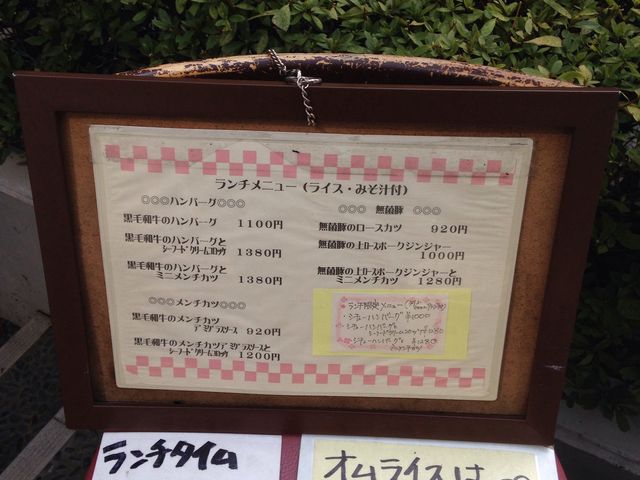 ランチメニュー (ライス・みそ汁付)
◎◎◎ハンバーグ◎◎◎
黒毛和牛のハンバーグ 1100円
黒毛和牛のハンバーグと
シーフードクリームコロッケ 1380円
黒毛和牛のハンバーグと
ミニメンチカツ 1380円
◎◎◎メンチカツ◎◎◎
黒毛和牛のメンチカツ
デミグラスソース 920円
黒毛和牛のメンチカツデミグラスソースと
シーフードクリームコロッケ 1200円
◎◎◎ 無菌豚 ◎◎◎
無菌豚のロースカツ 920円
無菌豚の上ロースポークジンジャー
1000円
無菌豚の上ロースポークジンジャーと
ミニメンチカツ 1280円
ランチ限定メニュー
・シチューハンバーグ ¥1000
・シチューハンバーグ&
シーフードクリームコロッケ ¥1280
シチューハンバーグ& ¥1280
ランチタイム
オムライスは